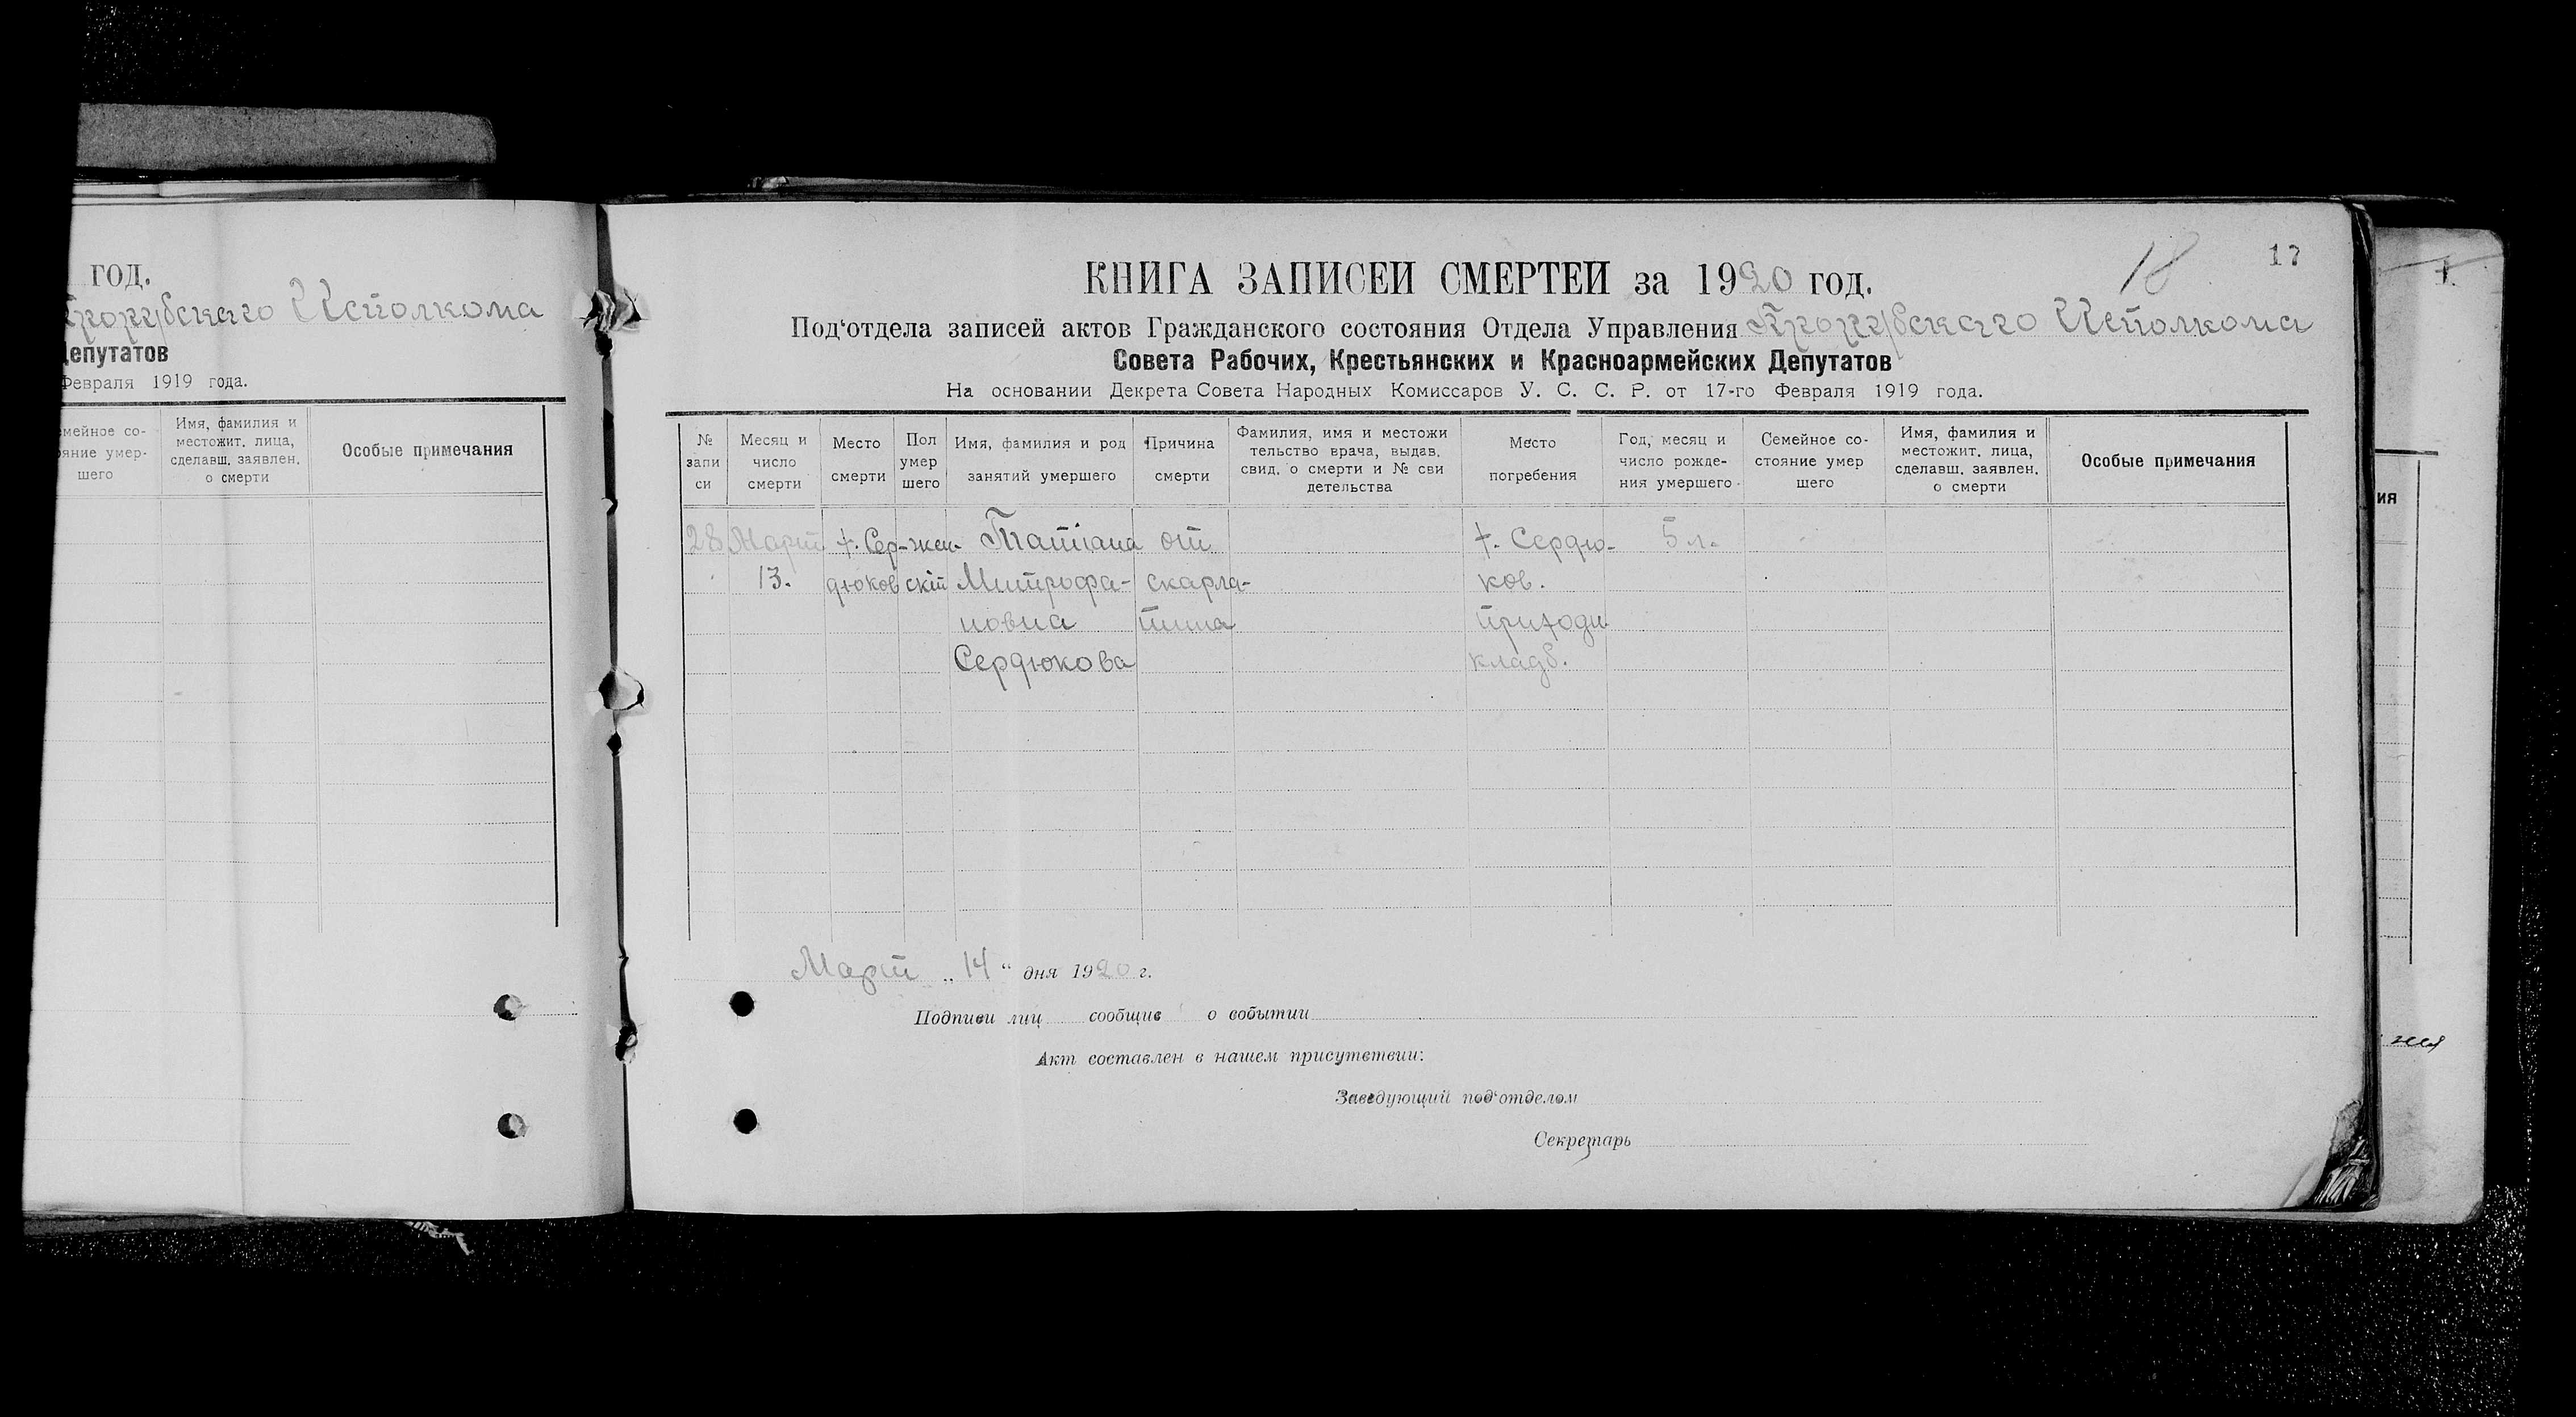 ГОД.
Исполкома
Депутатов
Февраля 1919 года.
Имя, фамилия и
местожит. лица,
сделавш. заявлен.
о смерти
Особые примечания
18
17
КНИГА ЗАПИСЕЙ СМЕРТЕЙ за 1920 год.
Под‘отдела записей актов Гражданского состояния Отдела Управления Исполкома
Совета Рабочих, Крестьянских и Красноармейских Депутатов
На основании Декрета Совета Народных Комиссаров У. С. С. Р. от 17-го Февраля 1919 года.
№
запи
си
Месяц и
число
смерти
Место
смерти
Пол
умер
шего
Имя, фамилия и род
занятий умершего
Причина
смерти
Фамилия, имя и местожи
тельство врача, выдав.
свид. о смерти и № сви
детельства
Место
погребения
Год, месяц и
число рожде-
ния умершего
Семейное со-
стояние умер
шего
Имя, фамилия и
местожит. лица,
сделавш. заявлен.
о смерти
Особые примечания
28 Март х. Сер- жен- Татіана от х. Сердю- 5 л.
13. дюков скій Митрофа- скарла- ков.
новна тина приходи
Сердюкова кладб.
Март „14“ дня 1920 г.
Подписи лиц сообщив о событии
Акт составлен в нашем присутствии:
Заведующий под‘отделом
Секретарь